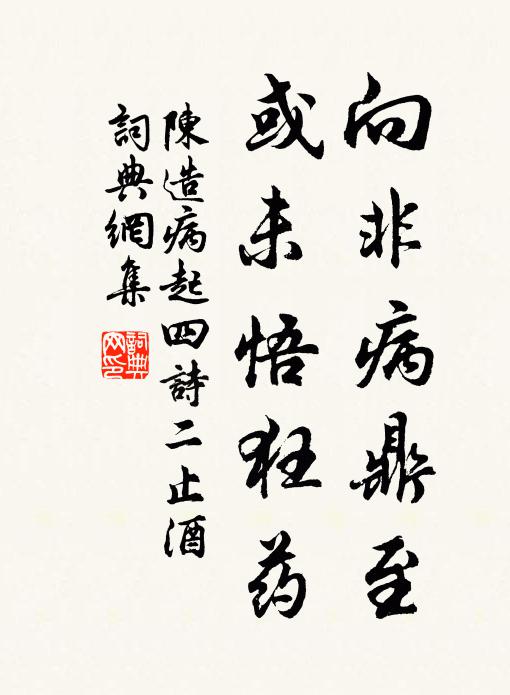 向非病鼎至
或未悟狂药
陳造病起四詩二止酒
詞典網集
詞典
网印